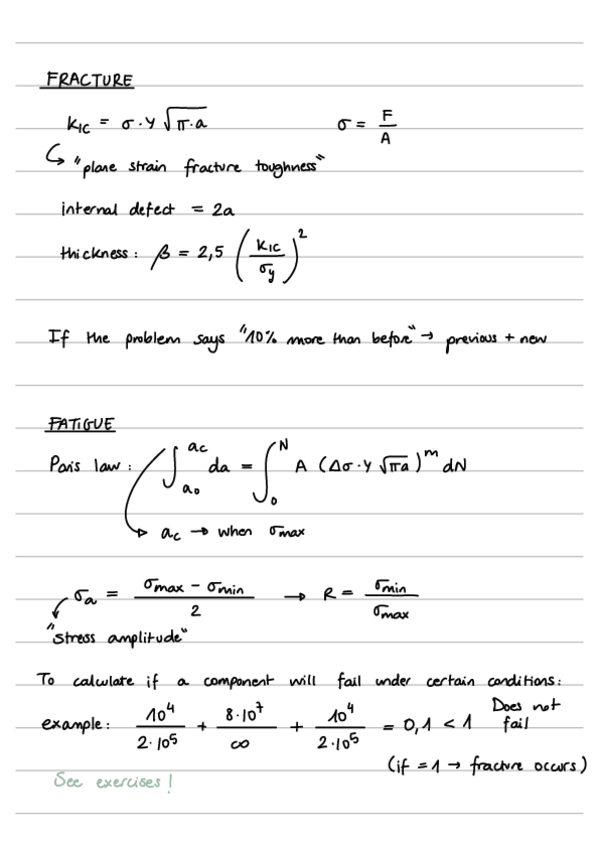 FRACTURE
K_IC = σ · Y √(π·a)    σ = F/A
↳ "plane strain fracture toughness"
internal defect = 2a
thickness: β = 2,5 (K_IC/σ_y)^2
If the problem says "10% more than before" → previous + new
FATIGUE
Paris law: ∫_{a_0}^{a_c} da = ∫_0^N A (Δσ · Y √(πa))^m dN
→ a_c → when σ_max
σ_a = (σ_max − σ_min)/2 → R = σ_min/σ_max
"stress amplitude"
To calculate if a component will fail under certain conditions:
example: 10^4/(2·10^5) + 8·10^7/∞ + 10^4/(2·10^5) = 0,1 < 1 Does not fail
(if = 1 → fracture occurs)
See exercises!